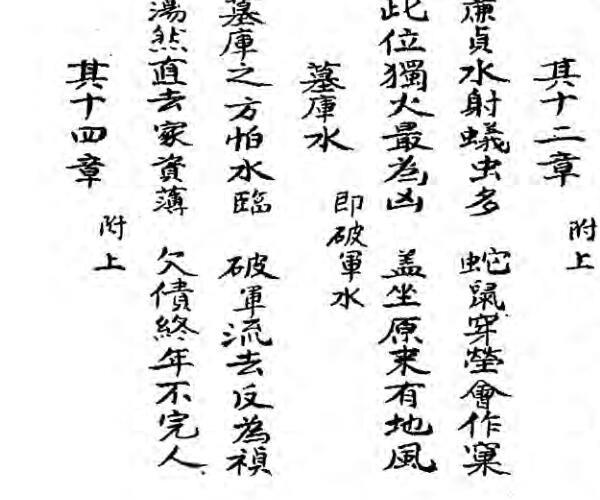 其十二章 附上
廉貞水射蟻虫多 蛇鼠穿塋會作窠
此位獨火最為凶 盖坐原来有地風
墓庫水 即破軍水
墓庫之方怕水臨 破軍流去反為禎
湯然直去家資薄 欠債終年不完人
其十四章 附上